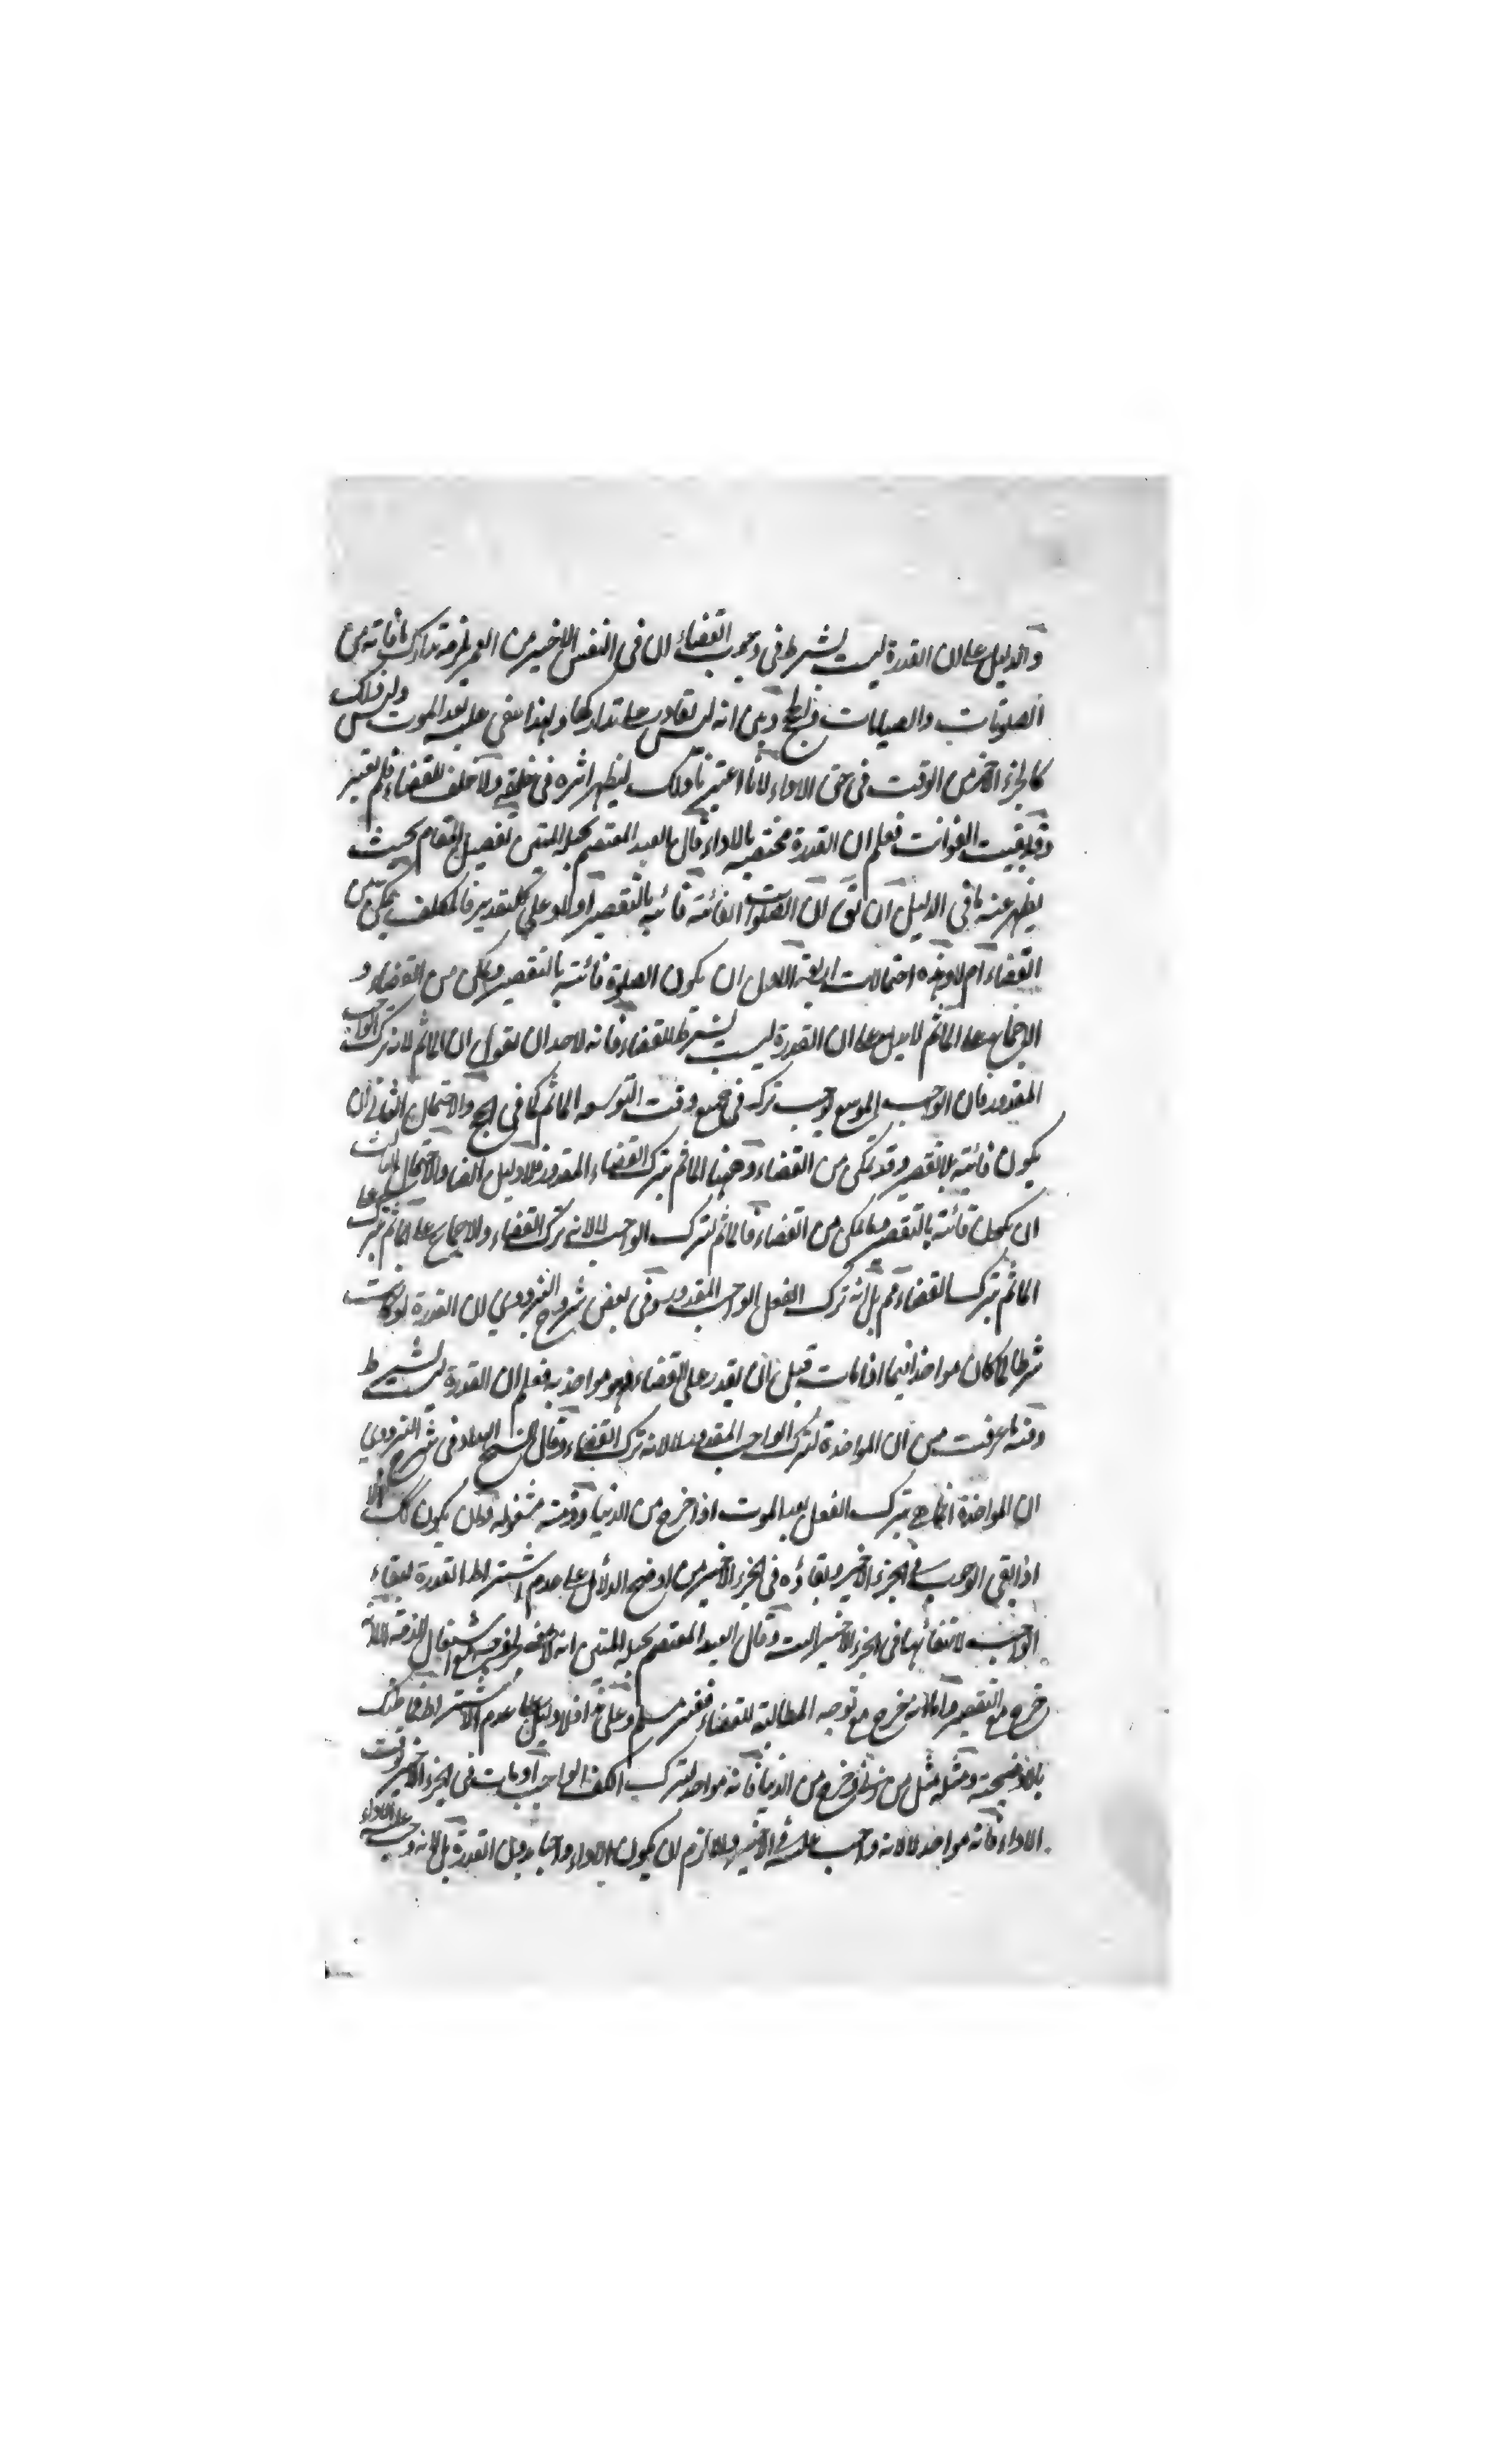 والدليل على ان القدرة ليست بشرط في وجوب القضاء ان في النفس الاخير من العمر يلزمه تدارك ما فاته من
الصلوات والصيامات والحج وبين انه ليس بقادر على تداركها ولهذا يبقى عليه بعد الموت وليس ذلك
كالجزء الآخر من الوقت في حق الاداء لانا اعتبرنا ذلك ليظهر اثره في خلفه ولا خلف للقضاء فلم يعتبر
وقد بقيت الفوائت فعلم ان القدرة مختصة بالاداء قال العبد المعتصم بحبله المتين تفصيل المقام بحيث
يظهر عنه ما في الدليل ان الصلوات الفائتة فائتة بالتقصير او لا وعلى كل تقدير فالمكلف تمكن من
القضاء ام لا وهذه احتمالات اربعة الاول ان يكون الصلوة فائتة بالتقصير وتمكن من القضاء و
الاجماع على المأثم لا يدل على ان القدرة ليست بشرط للقضاء فانه لاحد ان يقول ان المأثم لانه ترك الواجب
المقدور فان الواجب الموسع يوجب تركه في جميع وقت التوسعه المأثم كما في الحج والاحتمال الثاني ان
يكون فائتة بلا تقصير وقد تمكن من القضاء وههنا المأثم بترك القضاء المقدور فلا دليل ايضا والاحتمال الثالث
ان يكون فائتة بالتقصير من القضاء فالمأثم لترك الواجب لا لانه ترك القضاء والاجماع على
المأثم بترك القضاء مم بل لانه ترك الفعل الواجب المقدور وفي بعض شروح البزدوي ان القدرة لو كانت
شرطا لما كان مواخذا فيما اذا مات قبل ان يقدر على القضاء وهو مواخذ به فعلم ان القدرة ليست بشرط
وفيه ما عرفت من ان المواخذة لترك الواجب المقدور لا لانه ترك القضاء وقال الشيخ الهداد في شرح البزدوي
ان المواخذة انما هي بترك الفعل بعد الموت اذا خرج من الدنيا وذمته مشغولة ولن يكون كك الا
اذا بقي الوجوب في الجزء الاخير وبقاؤه في الجزء الاخير من اوضح الدلائل على عدم اشتراط القدرة لبقاء
الواجب لانتفائها في الجزء الاخير البتة وقال العبد المعتصم بحبله المتين انه اشتغال الذمة
خرج مع التقصير واما انه خرج مع توجه المطالبة للقضاء فغير مسلم وعلى هذا فلا دليل على عدم الاشتراط
ومثله مثل من خرج من الدنيا فانه مواخذ لترك الواجب او مات في الجزء الآخر من وقت
الاداء فانه مواخذ لا لانه واجب عليه في الاخير والا لزم ان يكون الاداء واجبا بدون القدرة بل لانه وجب عليه الاداء